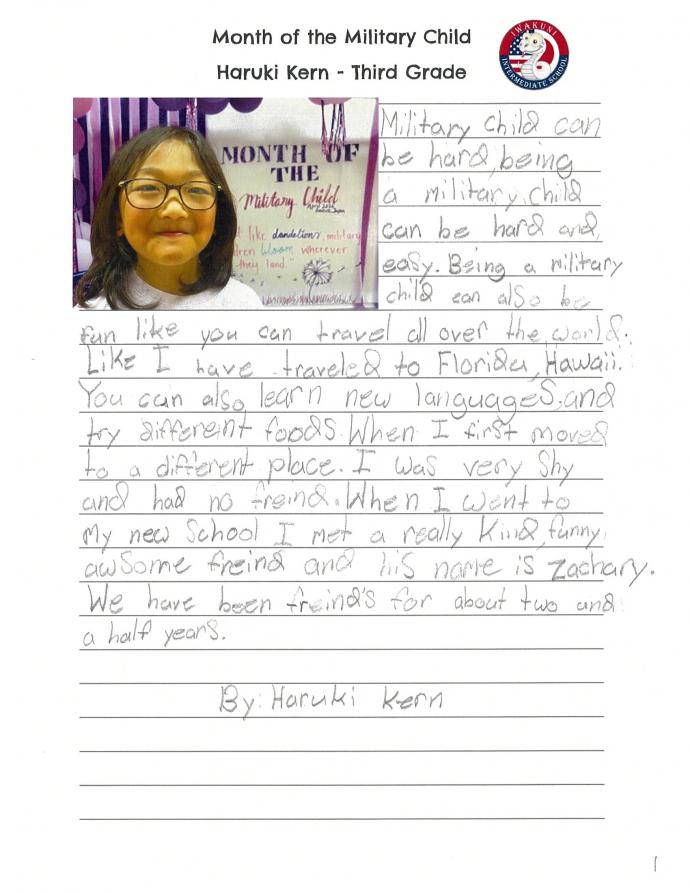 Month of the Military Child
Haruki Kern - Third Grade
IWAKUNI
INTERMEDIATE SCHOOL
MONTH OF
THE
Military Child
like dandelions, military
dren bloom wherever
they land."
Military child can
be hard, being
a military child
can be hard and
easy. Being a military
child can also be
fun like you can travel all over the world.
Like I have traveled to Florida, Hawaii.
You can also learn new languages, and
try different foods. When I first moved
to a different place. I was very Shy
and had no freind. When I went to
My new School I met a really Kind, funny,
awSome freind and his name is Zachary.
We have been freind's for about two and
a half years.
By: Haruki Kern
1